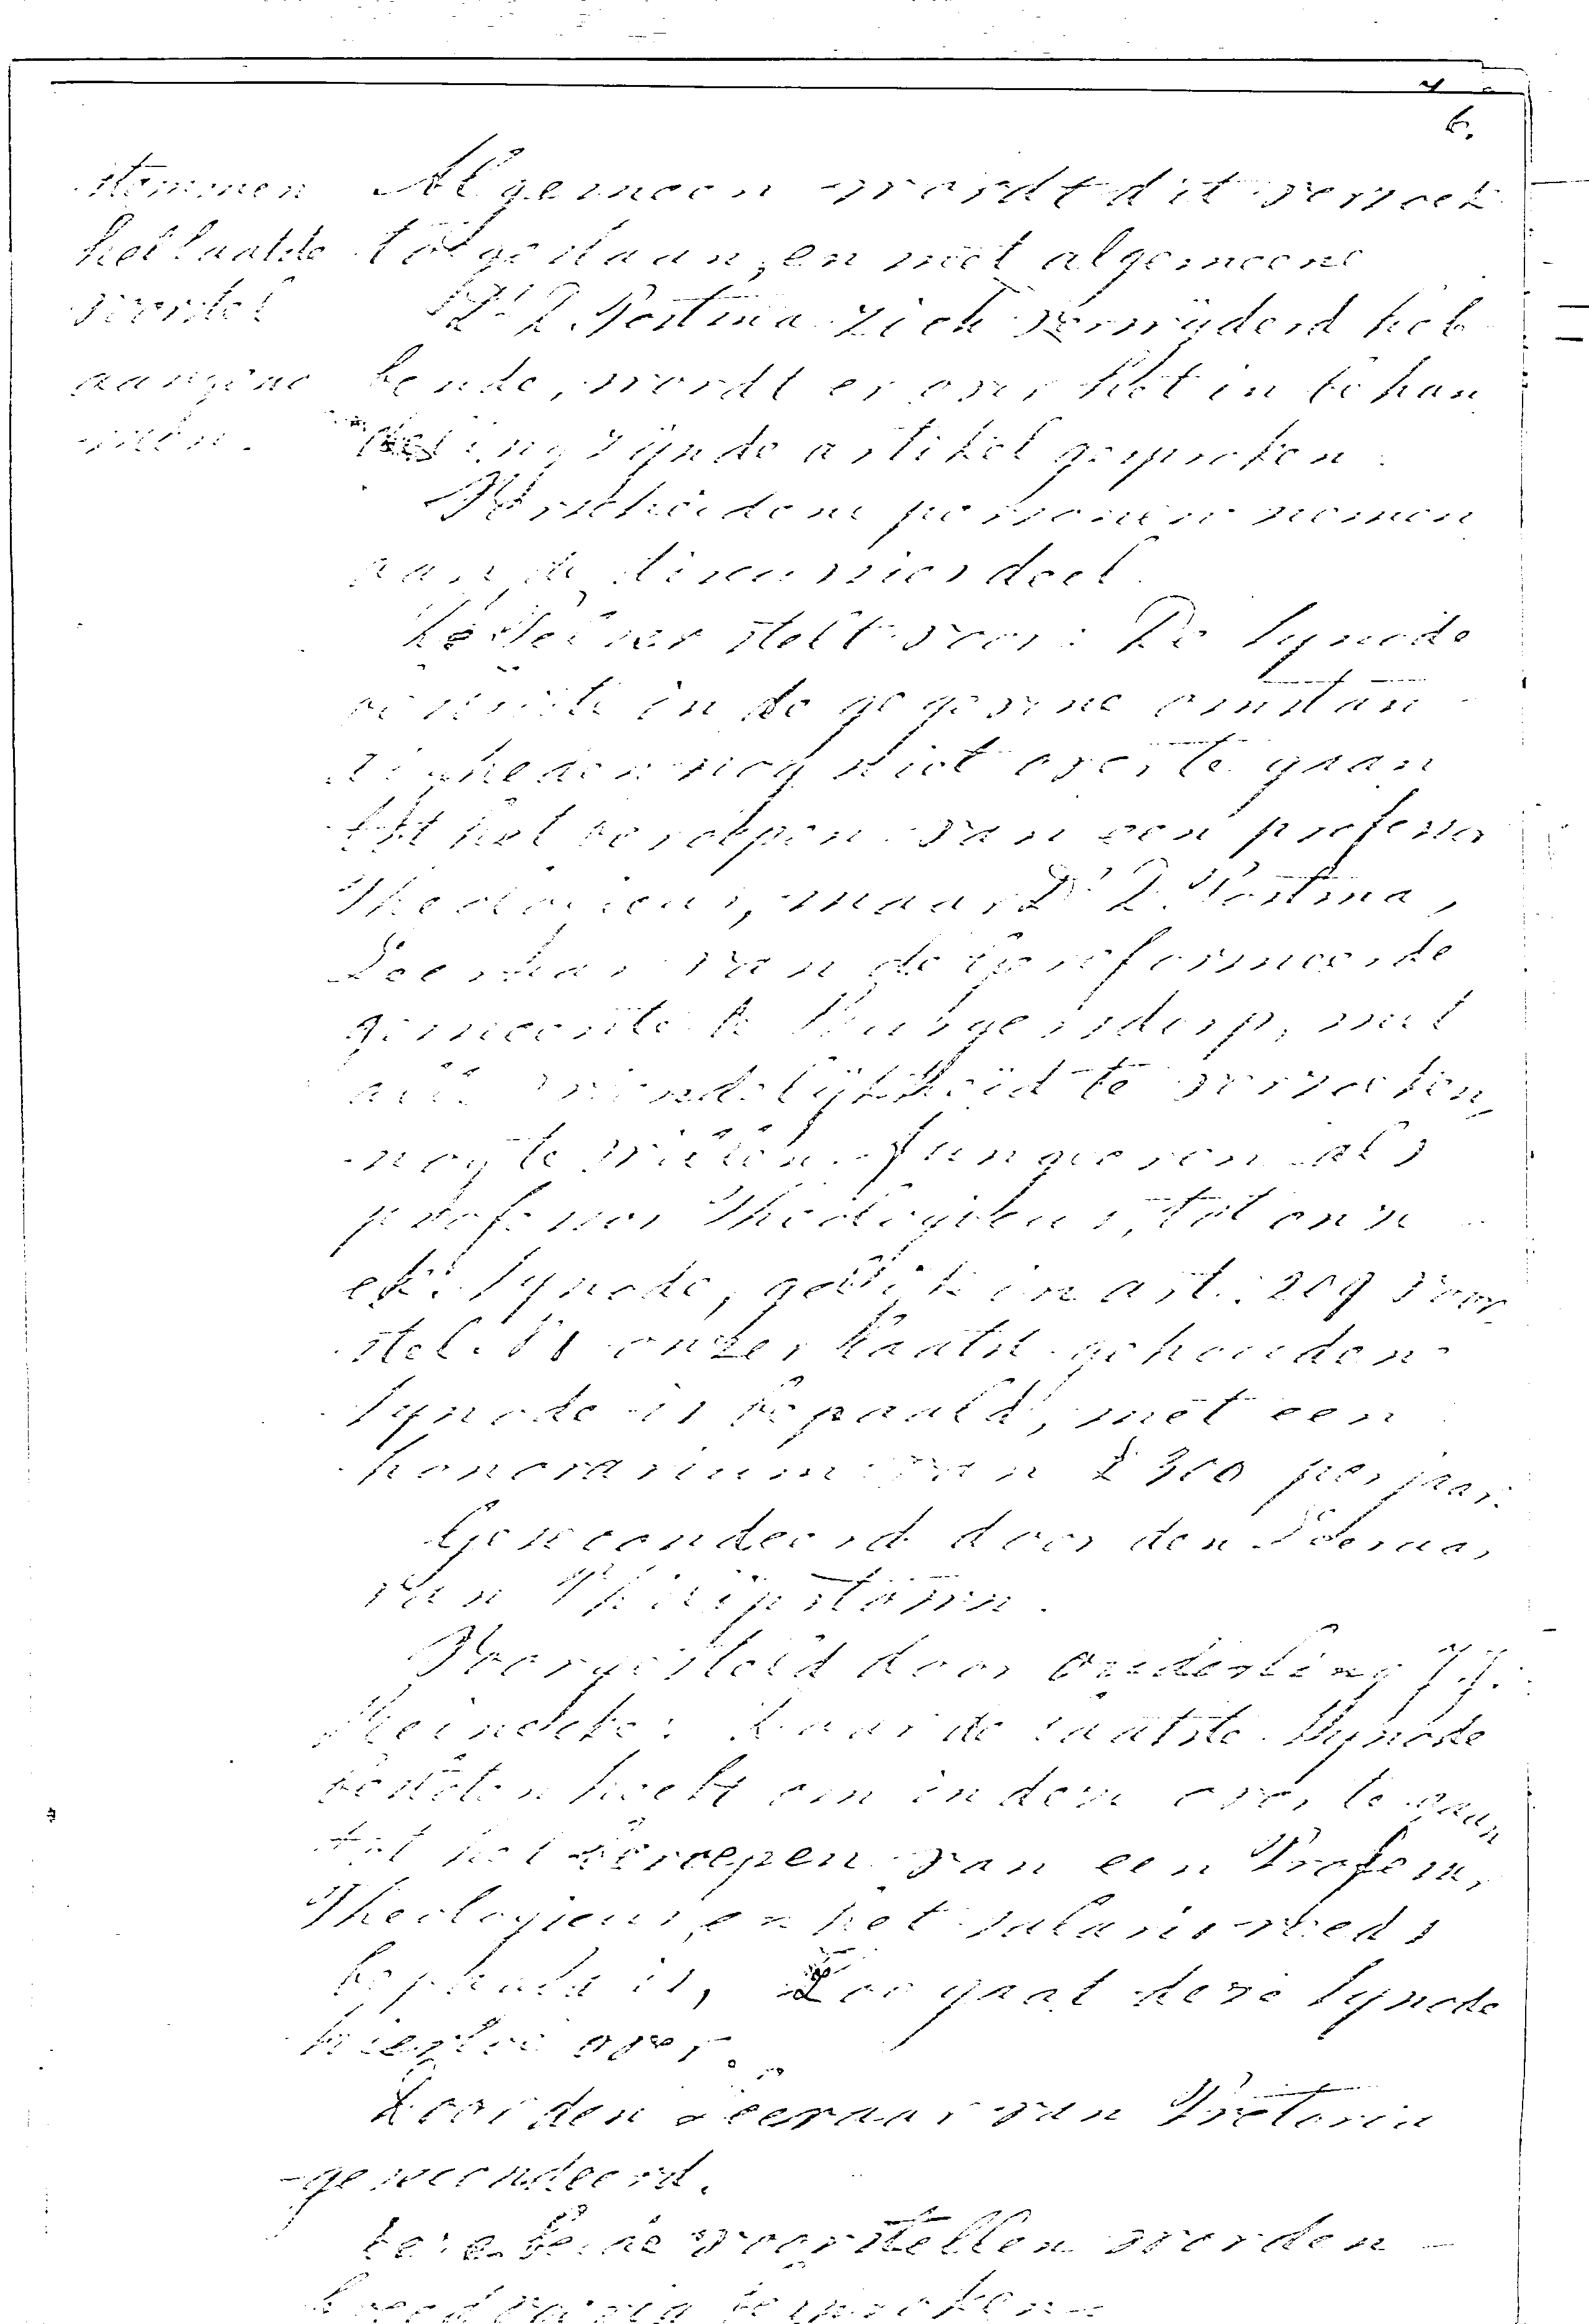 6.
stemmen
het laatste
voorstel
aangeno
men.
Algemeen wordt dit verzoek
toegestaan, en met algemeene
Ds D. Postma zich verwijderd heb
bende, wordt er over het in behan
deling zijnde artikel gesproken.
Verscheidene personen nemen
aan de discussies deel.
stelt voor: De Synode
besluite in de gegevene omstan
digheden nog niet over te gaan
tot het beroepen van een professor
Theologicus, maar Ds D. Postma,
Leeraar van de Gereformeerde
gemeente te Burgersdorp, met
alle vriendelijkheid te verzoeken,
nog te willen fungeren als
professor Theologicus, tot onze
Synode, gelijk in art. 209 voor
stel onzer laatst gehouden
Synode is bepaald, met een
honorarium van £ 300 per jaar.
Gesecondeerd door den Leeraar
van Philipstown.
Voorgesteld door ouderling J J.
Daar de laatste Synode
besloten heeft om indien over te gaan
tot het beroepen van een Professor
Theologicus en het salaris reeds
bepaald is, Zoo gaat deze Synode
hiertoe over.
Door den Leeraar van Pretoria
gesecondeerd.
Deze beide voorstellen worden
breedvoerig besproken